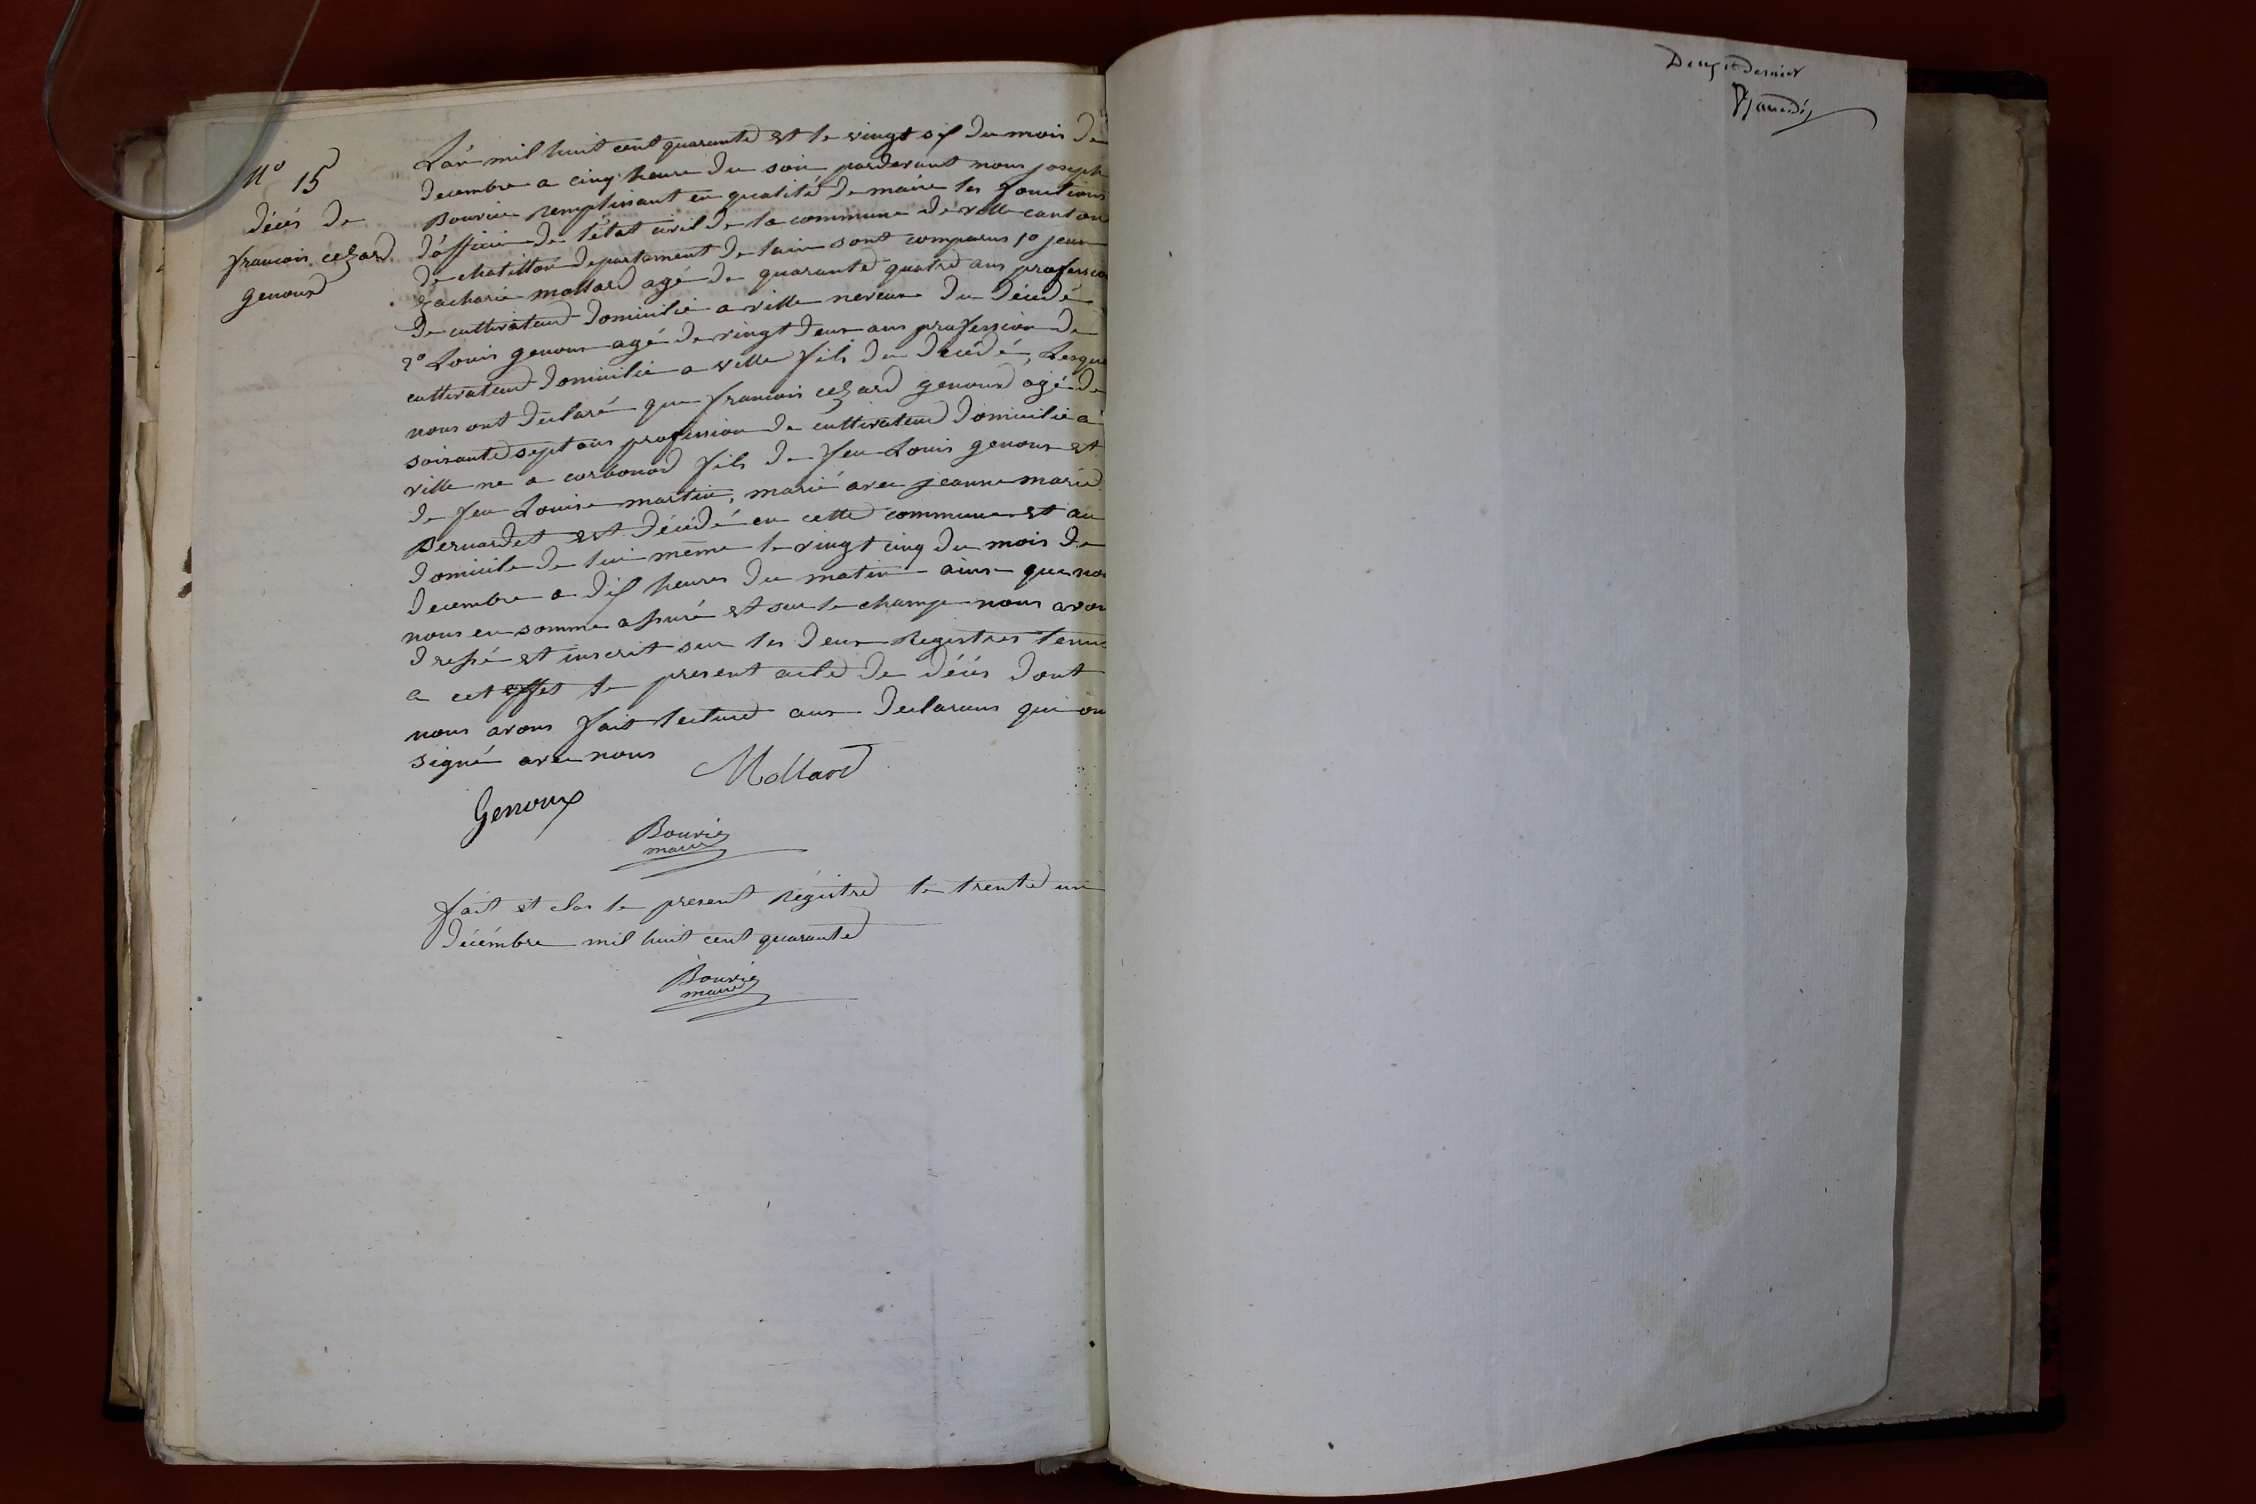 N° 15
décés de
francois cezard
genoux
L'an mil huit cent quarante et le vingt six du mois de
decembre a cinq heure du soir pardevant nous joseph
Bouvier remplissant en qualité de maire les fonctions
d'officier de l'état civil de la commune de ville canton
de chatillon departement de lain sont comparus 1° jean
zacharie mollard agé de quarante quatre ans profession
de cultivateur domicilié a ville neveux du décédé
2° Louis genoux agé de vingt deux ans profession de
cultivateur domicilié a ville fils du décédé, Lesque
nous ont déclaré que francois cezard genoux agé de
soixante sept ans profession de cultivateur domicilié a
ville né a corbonod fils de feu Louis genoux et
de feu Louise martin, marié avec jeanne marie
Bernardet est décédé en cette commune et au
domicile de lui même le vingt cinq du mois de
decembre a dix heures du matin ainsi que nou
nous en somme assuré et sur le champ nous avon
dressé et inscrit sur les deux Registres tenu
a cet effet le present acte de décés dont
nous avons fait lecture aux declarans qui on
signé avec nous
Mollard
Genoux
Bouvier
maire
fait et clos le present Régistre le trente un
décémbre mil huit cent quarante
Bouvier
maire
Deux et dernier